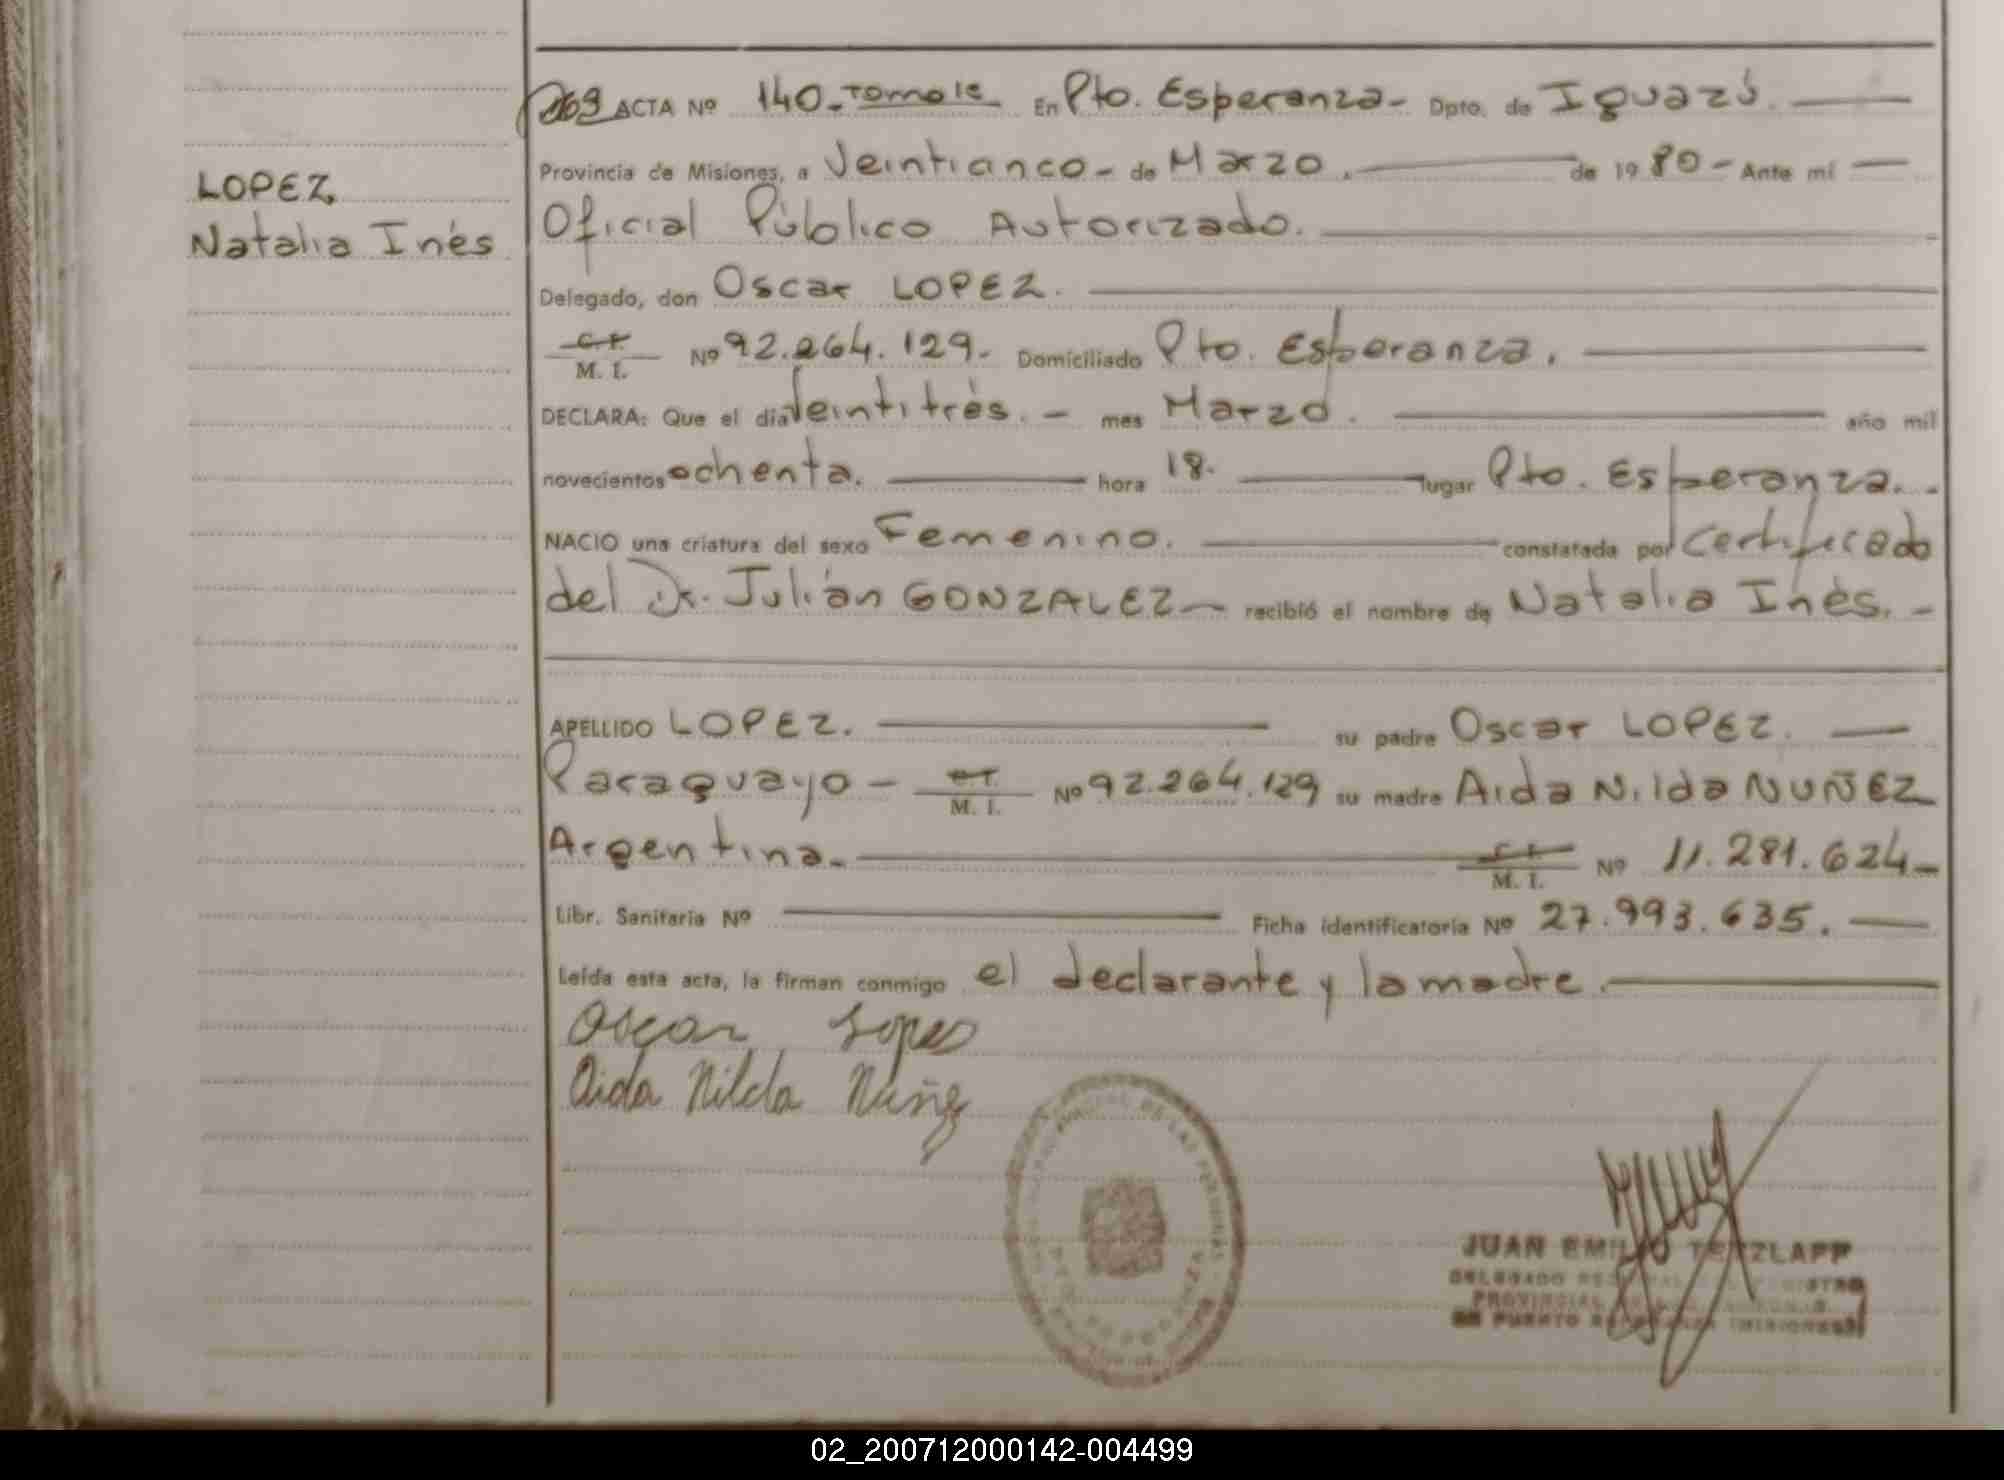 LOPEZ,
Natalia Inés
ACTA Nº 140-Tomo 1º En Pto. Esperanza- Dpto. de Iguazú.
Provincia de Misiones, a Veinticinco- de Marzo. de 1980- Ante mí
Oficial Público Autorizado.
Delegado, don Oscar LOPEZ.
C.I. M. I. Nº 92.264.129.- Domiciliado Pto. Esperanza.
DECLARA: Que el día Veintitrés.- mes Marzo. año mil
novecientos ochenta. hora 18. lugar Pto. Esperanza.-
NACIO una criatura del sexo Femenino. constatada por Certificado
del Dr. Julián GONZALEZ- recibió el nombre de Natalia Inés.-
APELLIDO LOPEZ. su padre Oscar LOPEZ.
Paraguayo- C.I. M. I. Nº 92.264.129 su madre Aida Nilda NUÑEZ
Argentina.- C.I. M. I. Nº 11.281.624-
Libr. Sanitaria Nº Ficha identificatoria Nº 27.993.635.
Leída esta acta, la firman conmigo el declarante y la madre.
Oscar Lopes
Aida Nilda Nuñez
JUAN EMILIO
DELEGADO
PROVINCIAL
DE PUERTO
02_200712000142-004499